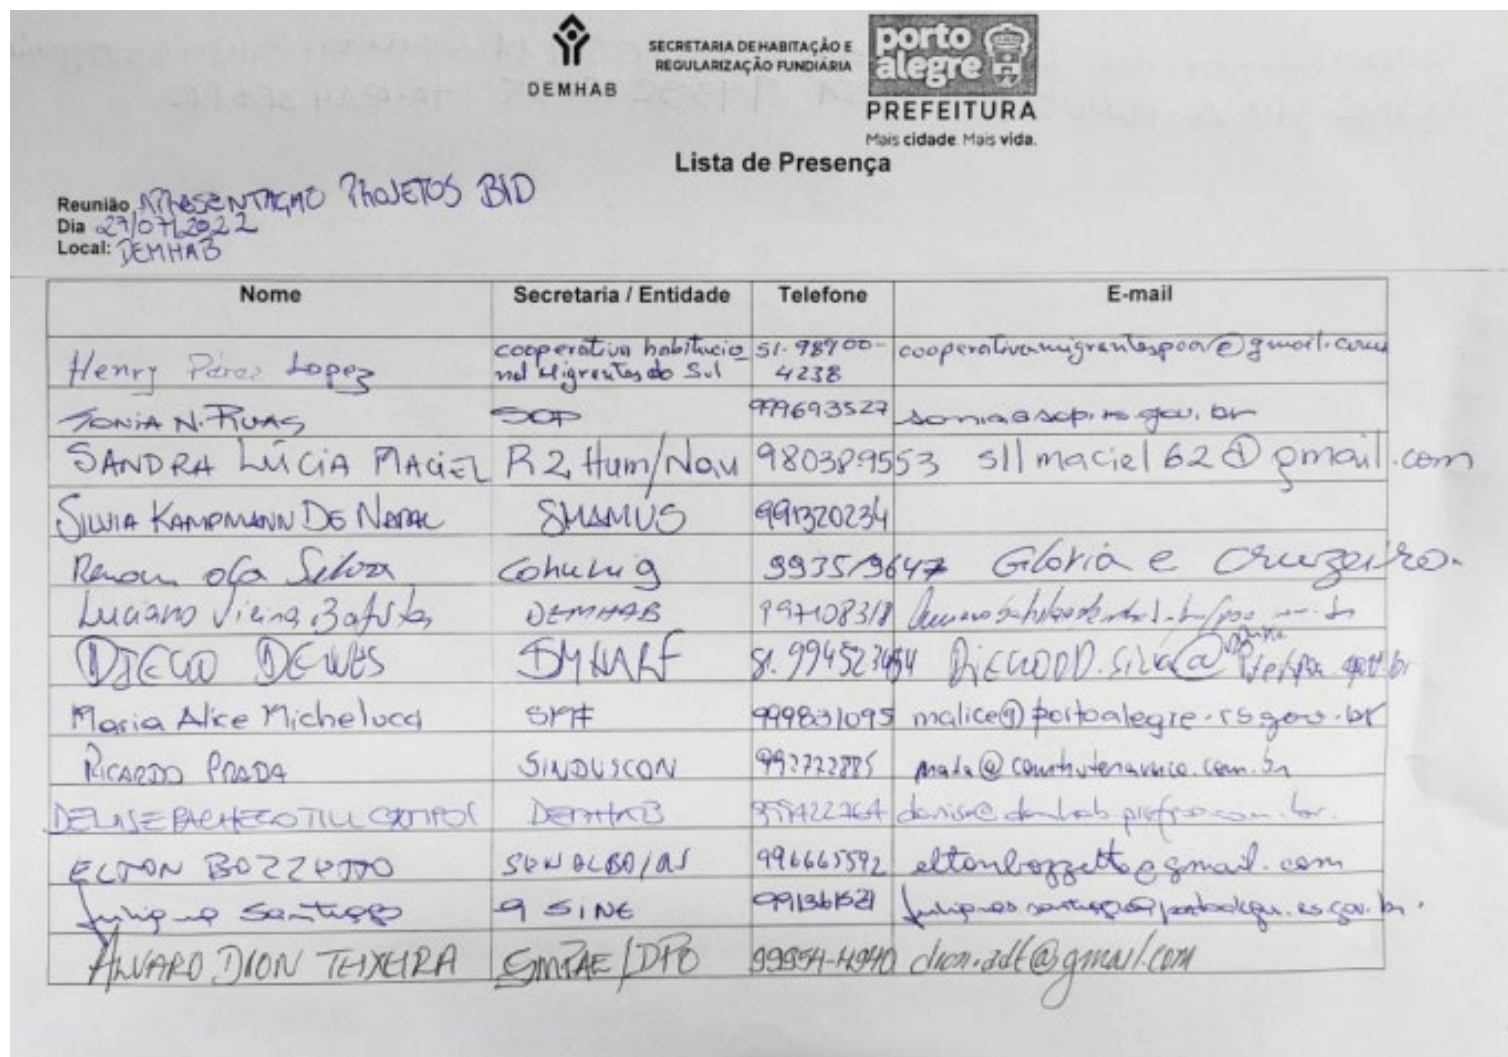 DEMHAB
SECRETARIA DE HABITAÇÃO E
REGULARIZAÇÃO FUNDIÁRIA
porto
alegre
PREFEITURA
Mais cidade. Mais vida.
Lista de Presença
Reunião APRESENTAÇÃO PROJETOS BID
Dia 27/07/2022
Local: DEMHAB
Nome Secretaria / Entidade Telefone E-mail
Henry Pérez Lopez cooperativa habitacio 51.98900- cooperativamigrantespoa@gmail.com
nal Migrantes do Sul 4238
SONIA N. RUAS SOP 999693527 sonia@sop.rs.gov.br
SANDRA LÚCIA MACIEL R2 Hum/Nav 980389553 sllmaciel62@gmail.com
SILVIA KAMPMANN DE SMAMUS 991320234
Renan da Silva 993519647 Gloria e Cruzeiro.
Luciano Vieira Batista DEMHAB 997108318
DIEGO DEWES SMHARF 51.994523454
Maria Alice Michelucci SMF 999831095 malice@portoalegre.rs.gov.br
RICARDO PRADA SINDUSCON 992722885
DENISE PACHECO TILL CAMPOS DEMHAB
ELTON BOZZETTO 996665592 eltonbozzetto@gmail.com
Santiago SINE 991361521
ALVARO DION TEIXEIRA SMPAE/DPO 99954-4940 dion.adt@gmail.com